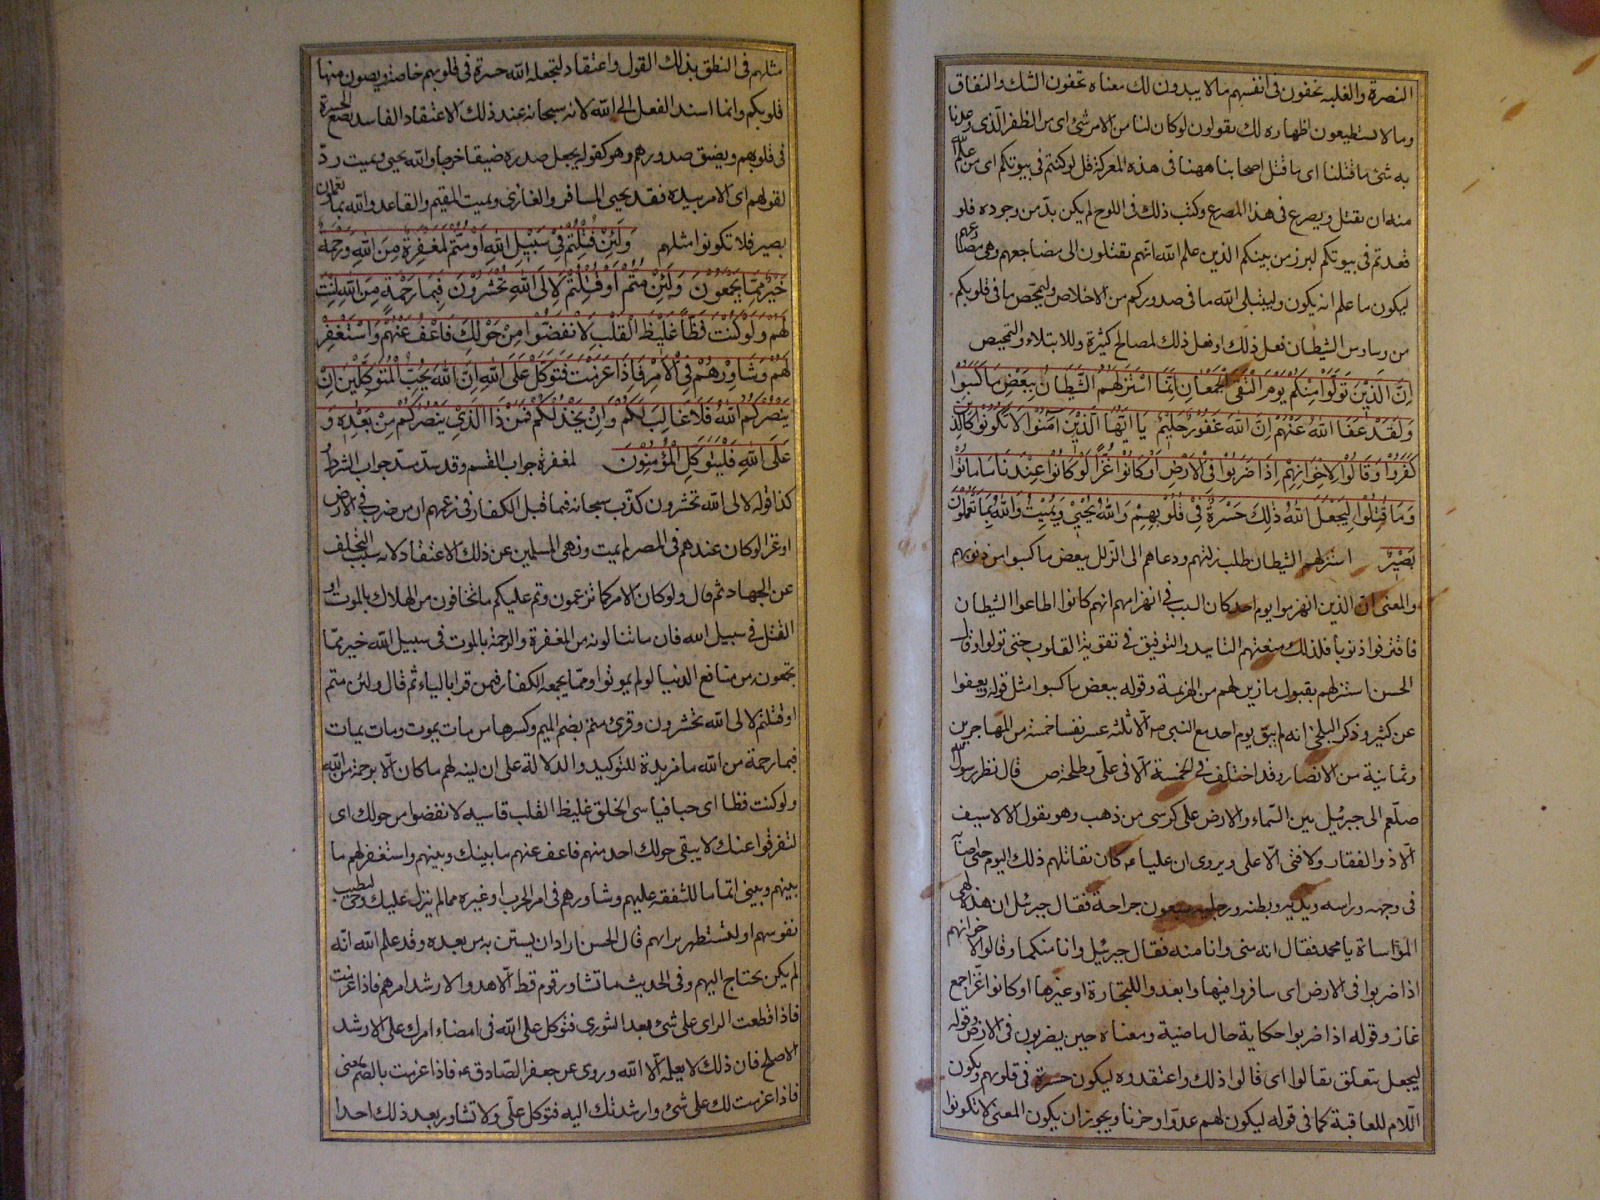 النصرة والغلبه يخفون فى انفسهم مالا يبدون لك معناه يخفون الشك والنفاق
ومالا يستطيعون اظهاره لك يقولون لوكان لنا من الامر شئ اى من الظفر الذى وعدنا
به شئ ماقتلنا اى ماقتل اصحابنا ههنا فى هذه المعركة قل لو كنتم فى بيوتكم اى من علم الله
منه ان يقتل ويصرع فى هذا المصرع وكتب ذلك فى اللوح لم يكن بدّ من وجوده فلو
قعدتم فى بيوتكم لبرز من بينكم الذين علم الله انهم يقتلون الى مضاجعهم وهى مصارعهم
ليكون ما علم انه يكون وليبتلى الله ما فى صدوركم من الاخلاص وليمحّص ما فى قلوبكم
من وساوس الشيطان فعل ذلك او فعل ذلك لمصالح كثيرة وللابتلاء والتمحيص
اِنَّ الَّذينَ تَوَلَّوْا مِنْكُمْ يَوْمَ الْتَقَى الْجَمْعَانِ اِنَّمَا اسْتَزَلَّهُمُ الشَّيْطَانُ بِبَعْضِ مَا كَسَبُوا
وَلَقَدْ عَفَا اللّٰهُ عَنْهُمْ اِنَّ اللّٰهَ غَفُورٌ حَلِيمٌ يَا اَيُّهَا الَّذِينَ آمَنُوا لَا تَكُونُوا كَالَّذِينَ
كَفَرُوا وَقَالُوا لِاِخْوَانِهِمْ اِذَا ضَرَبُوا فِى الْاَرْضِ اَوْ كَانُوا غُزًّا لَوْ كَانُوا عِنْدَنَا مَا مَاتُوا
وَمَا قُتِلُوا لِيَجْعَلَ اللّٰهُ ذٰلِكَ حَسْرَةً فِى قُلُوبِهِمْ وَاللّٰهُ يُحْيِى وَيُمِيتُ وَاللّٰهُ بِمَا تَعْمَلُونَ
بَصِيرٌ استزلهم الشيطان طلب زلتهم ودعاهم الى الزلل ببعض ماكسبوا من ذنوبهم
والمعنى ان الذين انهزموا يوم احد كان السبب فى انهزامهم انهم كانوا اطاعوا الشيطان
فاقترفوا ذنوبا فلذلك منعتهم التاييد والتوفيق فى تقوية القلوب حتى تولوا وقال
الحسن استزلهم بقبول مازين لهم من الهزيمة وقوله ببعض ماكسبوا مثل قوله ويعفوا
عن كثير وذكر البلخى انه لم يبق يوم احد مع النبى صه الا ثلثه عشر نفسا خمسة من المهاجرين
وثمانية من الانصار وقد اختلف فى الخمسة الا فى علّى وطلحة قال نظر رسول الله
صلعم الى جبرئيل بين السماء والارض على كرسى من ذهب وهو يقول الا لاسيف
الا ذو الفقار ولا فتى الا على ويروى ان عليا كان يقاتلهم ذلك اليوم حتى اصابه
فى وجهه وراسه ويديه وبطنه ورجليه سبعون جراحة فقال جبرئل ان هذه لهى
المؤاساة يا محمد فقال انه منى وانا منه فقال جبرئيل وانا منكما وقالوا لاخوانهم
اذا ضربوا فى الارض اى سافروا فيها وابعدوا للتجارة او غيرها او كانوا غزا جمع
غاز وقوله اذا ضربوا حكاية حال ماضية ومعناه حين يضربون فى الارض وقوله
ليجعل يتعلق بقالوا اى قالوا ذلك واعتقدوه ليكون حسرة فى قلوبهم ويكون
اللام للعاقبة كما فى قوله ليكون لهم عدوا وحزنا ويجوز ان يكون المعنى لا تكونوا
مثلهم فى النطق بذلك القول واعتقاد ليجعله الله حسرة فى قلوبهم خاصة ويصون منها
قلوبكم وانما اسند الفعل الى الله لانه سبحانه عند ذلك الاعتقاد الفاسد يضع الحسرة
فى قلوبهم ويضيق صدورهم وهو كقوله يجعل صدره ضيقا حرجا والله يحيى ويميت ردّ
لقولهم اى الامر بيده فقد يحيى المسافر والغازى ويميت المقيم والقاعد والله بما تعملون
بصير فلا تكونوا مثلهم وَلَئِنْ قُتِلْتُمْ فِى سَبِيلِ اللّٰهِ اَوْ مُتُّمْ لَمَغْفِرَةٌ مِنَ اللّٰهِ وَرَحْمَةٌ
خَيْرٌ مِمَّا يَجْمَعُونَ وَلَئِنْ مُتُّمْ اَوْ قُتِلْتُمْ لَاِلَى اللّٰهِ تُحْشَرُونَ فَبِمَا رَحْمَةٍ مِنَ اللّٰهِ لِنْتَ
لَهُمْ وَلَوْ كُنْتَ فَظًّا غَلِيظَ الْقَلْبِ لَانْفَضُّوا مِنْ حَوْلِكَ فَاعْفُ عَنْهُمْ وَاسْتَغْفِرْ
لَهُمْ وَشَاوِرْهُمْ فِى الْاَمْرِ فَاِذَا عَزَمْتَ فَتَوَكَّلْ عَلَى اللّٰهِ اِنَّ اللّٰهَ يُحِبُّ الْمُتَوَكِّلِينَ اِنْ
يَنْصُرْكُمُ اللّٰهُ فَلَا غَالِبَ لَكُمْ وَاِنْ يَخْذُلْكُمْ فَمَنْ ذَا الَّذِى يَنْصُرُكُمْ مِنْ بَعْدِهِ وَ
عَلَى اللّٰهِ فَلْيَتَوَكَّلِ الْمُؤْمِنُونَ لمغفرة جواب القسم وقد سدّ مسدّ جواب الشرط و
كذا قوله لالى الله تحشرون كذّب سبحانه فيما قبل الكفار فى زعمهم ان من ضرب فى الارض
او غزا لو كان عندهم فى المصر لم يمت ونهى المسلمين عن ذلك الاعتقاد لانه سبب التخلف
عن الجهاد ثم قال ولو كان الامر كما تزعمون وتم عليكم ما تخافون من الهلاك بالموت او
القتل فى سبيل الله فان ماتنالونه من المغفرة والرحمة بالموت فى سبيل الله خير ممّا
تجمعون من منافع الدنيا لو لم يموتوا وممّا يجمعه الكفار فيمن قرا بالياء ثم قال ولئن متم
او قتلتم لالى الله تحشرون وقرئ متم بضم الميم وكسرها من مات يموت ومات يمات
فبما رحمة من الله ما مزيدة للتوكيد والدلالة على ان لينه لهم ماكان الا برحمة من الله
ولو كنت فظا اى جافيا سى الخلق غليظ القلب قاسيه لانفضوا من حولك اى
لتفرقوا عنك لا يبقى حولك احد منهم فاعف عنهم ما بينك وبينهم واستغفر لهم ما
بينهم وبينى اتماما للشفقه عليهم وشاورهم فى امر الحرب او غيره مما لم ينزل عليك وحى لتطيب
نفوسهم او لتستظهر برايهم قال الحسن اراد ان يستن به من بعده وقد علم الله انه
لم يكن يحتاج اليهم وفى الحديث ماتشاور قوم قط الا هدوا لارشد امرهم فاذا عزمت
فاذا قطعت الراى على شئ بعد الشورى فتوكل على الله فى امضاء امرك على الارشد
الاصلح فان ذلك لايعلمه الا الله وروى عن جعفر الصادق عه فاذا عزمت بالضم بمعنى
فاذا عزمت لك على شئ وارشدتك اليه فتوكل على ولا تشاور بعد ذلك احدا